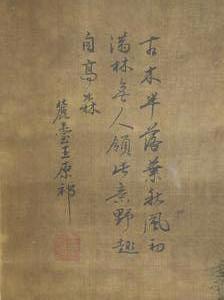 古木半落葉秋風初
满林無人領此意野趣
自高森
麓臺王原祁